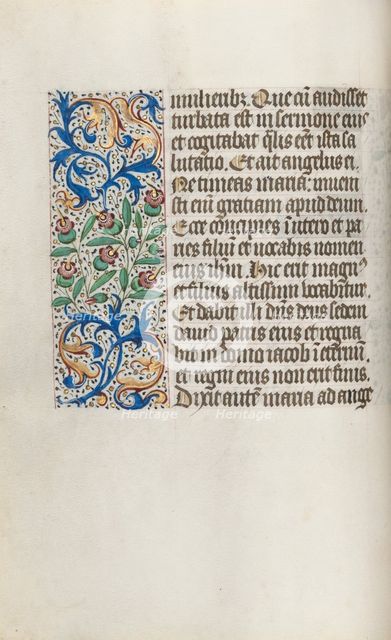 mulieribz. Que cū audisset
turbata est in sermone eius
et cogitabat q̄lis eēt ista sa
lutatio. Et ait angelus ei
Ne timeas maria: inueni
sti eni gratiam apud deum.
Ecce concipies ī utero et pa
ries filiū et vocabis nomen
eius ihm̄. Hic erit magn
et filius altissimi vocabitur
Et dabit illi dn̄s deus sedem
dauid patris eius et regna
bit in domo iacob ī eternū.
et regni eius non erit finis.
Dixit autē maria ad ange
Heritage
Heritage
Heritage
Heritage